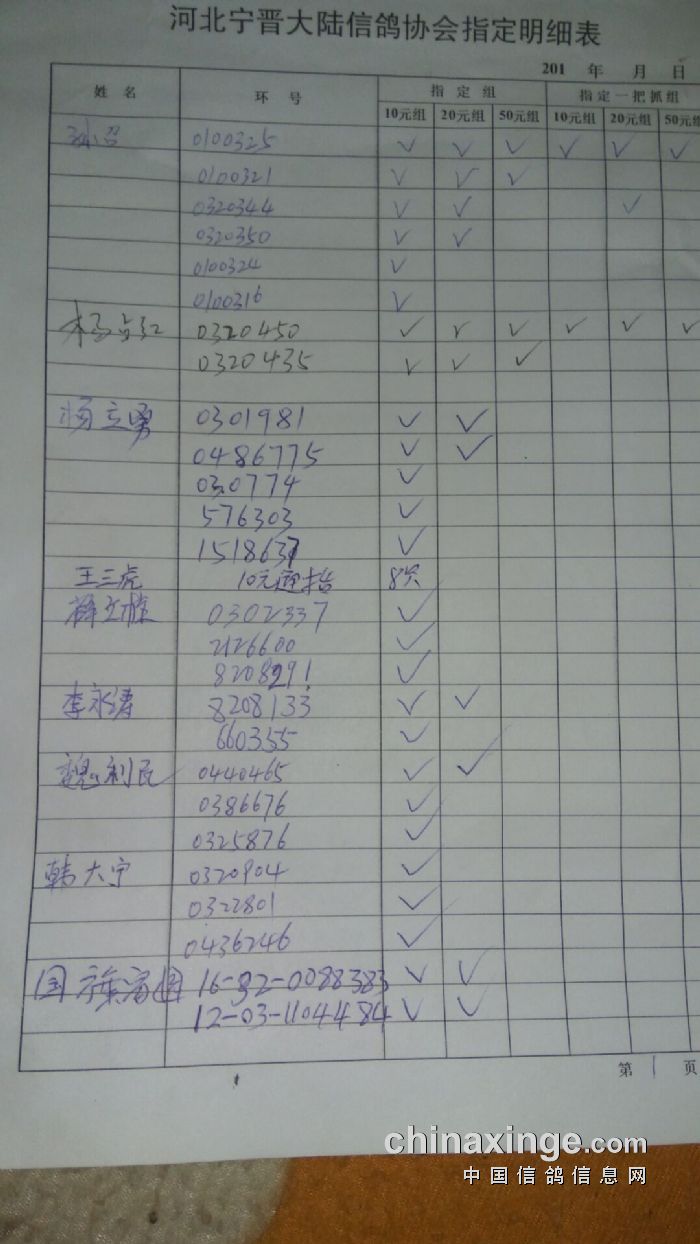 河北宁晋大陆信鸽协会指定明细表
201 年 月 日
姓 名 环 号 指 定 组 指 定 一 把 抓 组
10元组 20元组 50元组 10元组 20元组 50元组
0100325 ✓ ✓ ✓ ✓ ✓ ✓
0100321 ✓ ✓ ✓
0320344 ✓ ✓ ✓
0320350 ✓ ✓
0100324 ✓
0100316 ✓
杨占红 0320450 ✓ ✓ ✓ ✓ ✓ ✓
0320435 ✓ ✓ ✓
杨立勇 0301981 ✓ ✓
0486775 ✓ ✓
030774 ✓
576303 ✓
1518637 ✓
王三虎 10元通指 8只
0302337 ✓
2126600 ✓
8208291 ✓
李永涛 8208133 ✓ ✓
660355 ✓
魏利民 0440465 ✓ ✓
0386676 ✓
0325876 ✓
韩大宁 0320904 ✓
0322801 ✓
0436246 ✓
国 16-32-0088383 ✓ ✓
12-03-1104484 ✓ ✓
第 1 页
chinaxinge.com
中国信鸽信息网